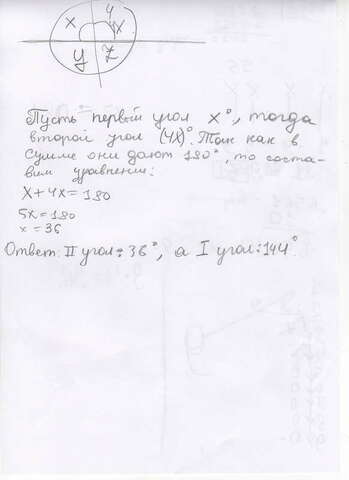 x y 4x
y z
Пусть первый угол x°, тогда
второй угол (4x)°. Так как в
сумме они дают 180°, то соста-
вим уравнение:
x+4x=180
5x=180
x=36
Ответ: II угол: 36°, а I угол: 144°.